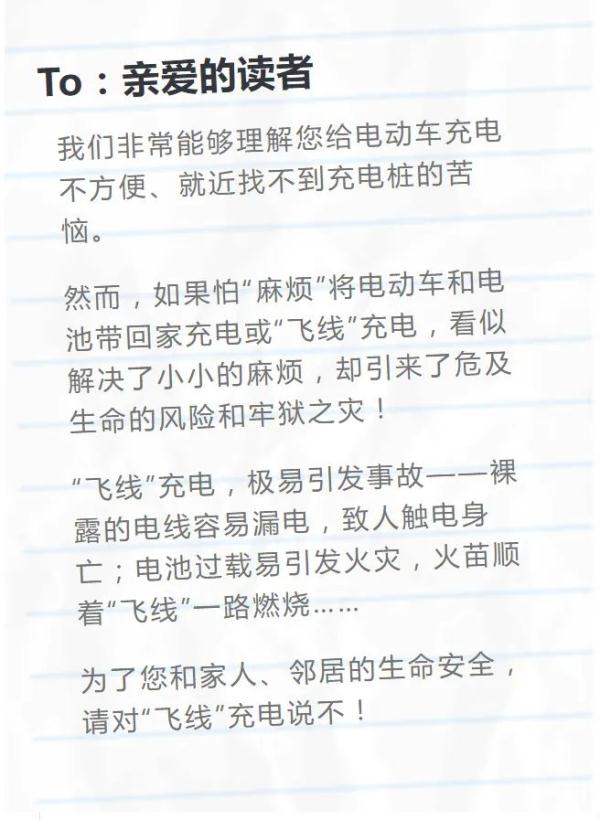 To：亲爱的读者
我们非常能够理解您给电动车充电
不方便、就近找不到充电桩的苦
恼。
然而，如果怕“麻烦”将电动车和电
池带回家充电或“飞线”充电，看似
解决了小小的麻烦，却引来了危及
生命的风险和牢狱之灾！
“飞线”充电，极易引发事故——裸
露的电线容易漏电，致人触电身
亡；电池过载易引发火灾，火苗顺
着“飞线”一路燃烧……
为了您和家人、邻居的生命安全，
请对“飞线”充电说不！